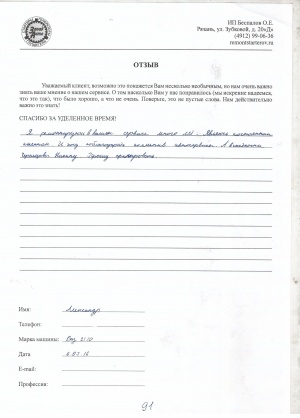 ИП Беспалов О.Е.
Рязань, ул. Зубковой, д. 20«Д»
(4912) 99-06-36
remontstarterov.ru
ОТЗЫВ
Уважаемый клиент, возможно это покажется Вам несколько необычным, но нам очень важно
знать ваше мнение о нашем сервисе. О том насколько Вам у нас понравилось (мы искренне надеемся,
что это так), что было хорошо, а что не очень. Поверьте, это не пустые слова. Нам действительно
важно это знать!
СПАСИБО ЗА УДЕЛЕННОЕ ВРЕМЯ!
Я ремонтируюсь в вашем сервисе много лет. Являюсь постоянным
клиентом И хочу поблагодарить коллектив автосервиса. А
Имя: Александр
Телефон:
Марка машины: Ваз 2110
Дата
E-mail:
Профессия:
91